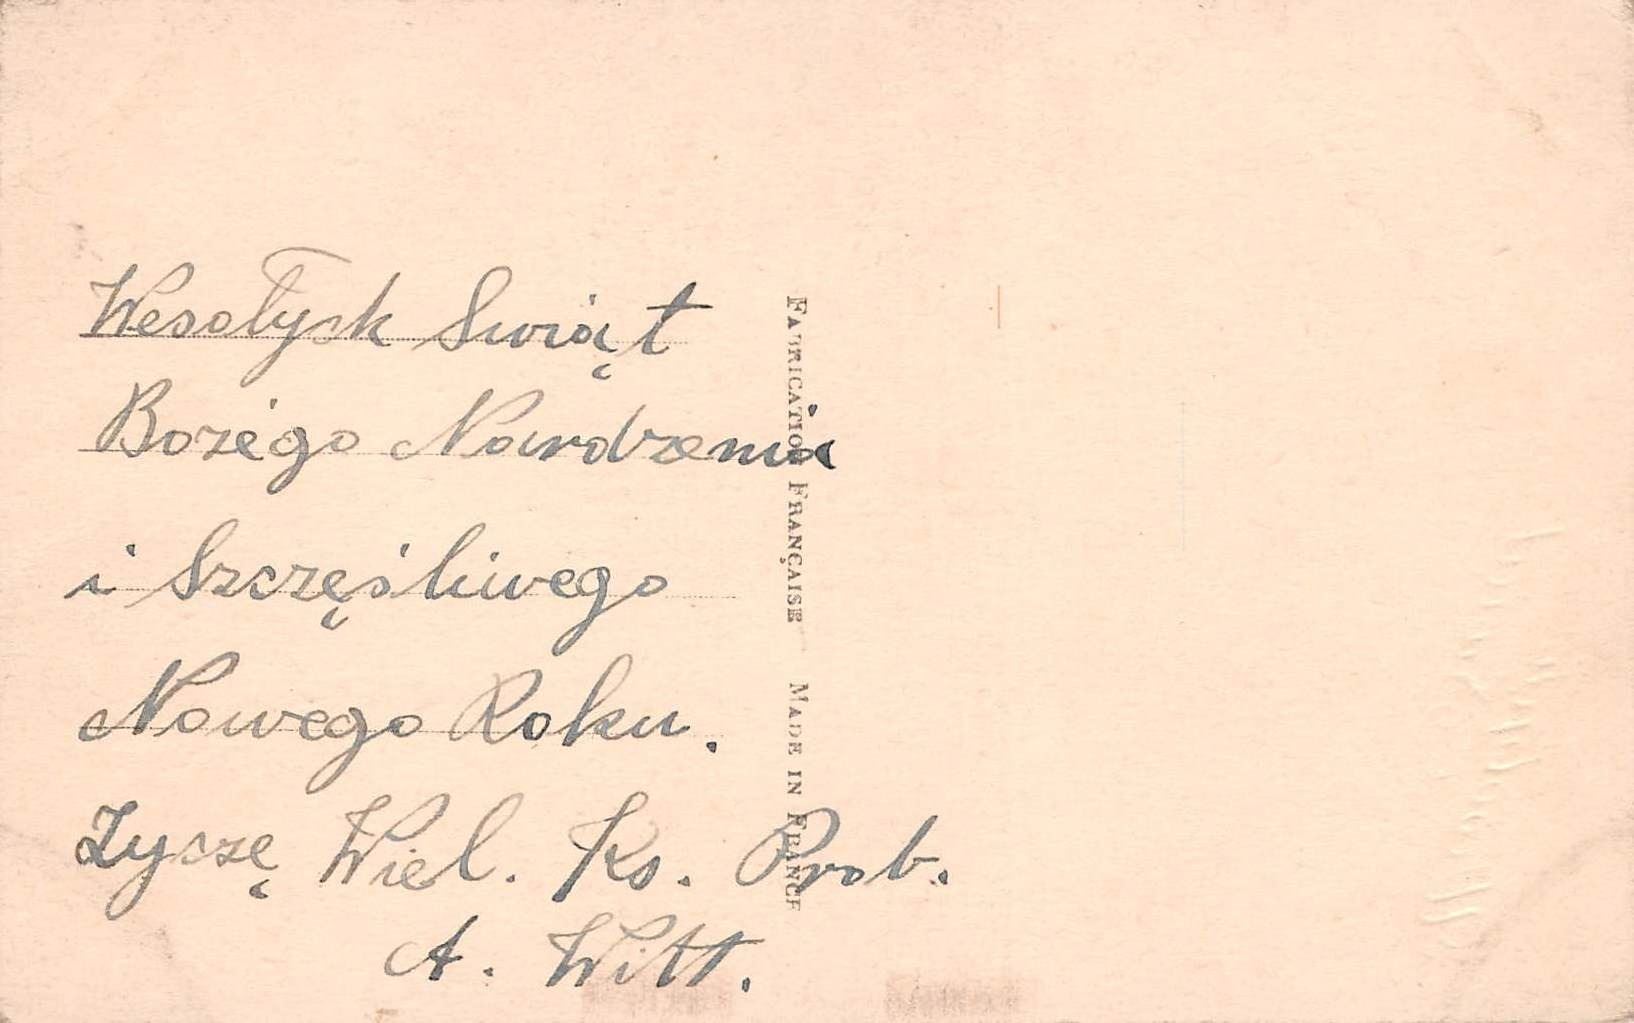 Wesołych Swiąt
Bożego Nardzenia
i Szczęśliwego
Nowego Roku.
Zyczę Wiel. Ks. Prob.
A. Witt.
FABRICATION FRANÇAISE MADE IN FRANCE